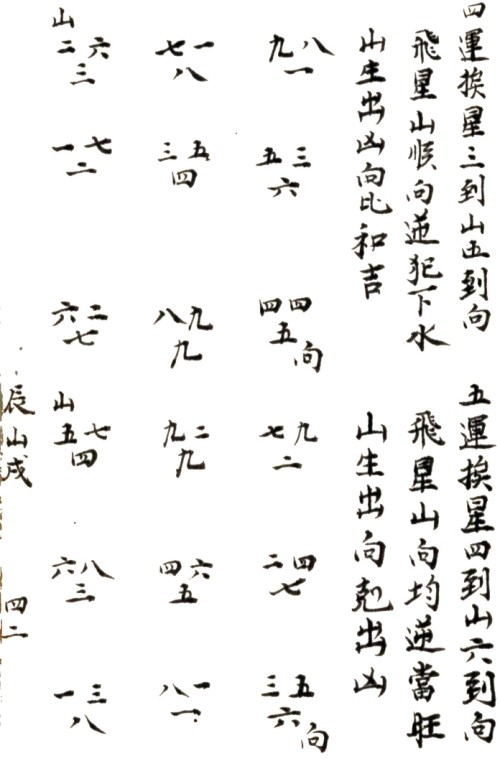 四運挨星三到山五到向
飛星山順向逆犯下水
山生出凶向比和吉
九八
一
五三
六
四四
五
向
七一
八
三五
四
八九
九
山
二六
三
一七
二
六二
七
五運挨星四到山六到向
飛星山向均逆當旺
山生出向剋出凶
七九
二
二四
七
三五
六
向
九二
九
四六
五
八一
一
山
五七
四
六八
三
一三
八
辰山戌
四二